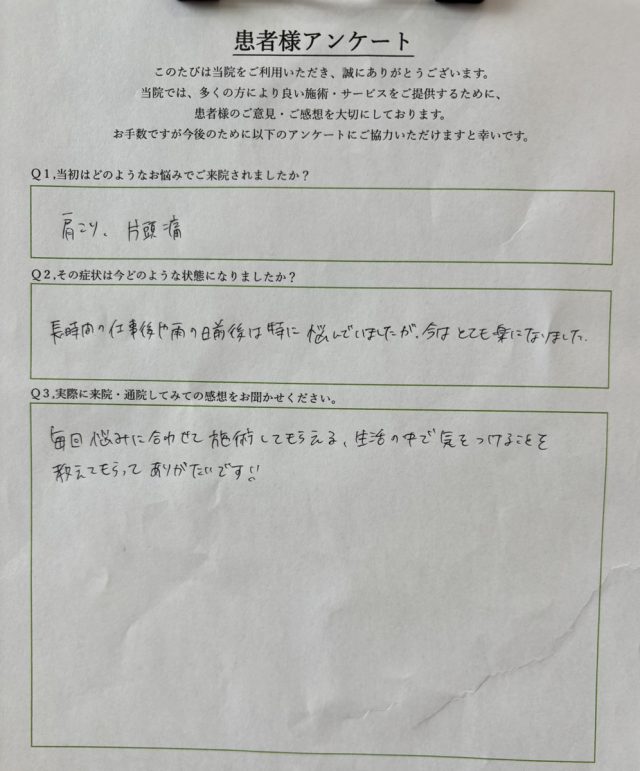 患者様アンケート
このたびは当院をご利用いただき、誠にありがとうございます。
当院では、多くの方により良い施術・サービスをご提供するために、
患者様のご意見・ご感想を大切にしております。
お手数ですが今後のために以下のアンケートにご協力いただけますと幸いです。
Q1,当初はどのようなお悩みでご来院されましたか？
肩こり、片頭痛
Q2,その症状は今どのような状態になりましたか？
長時間の仕事後や雨の日前後は特に悩んでいましたが、今はとても楽になりました.
Q3,実際に来院・通院してみての感想をお聞かせください。
毎回悩みに合わせて施術してもらえる、生活の中で気をつけることを
教えてもらってありがたいです!!